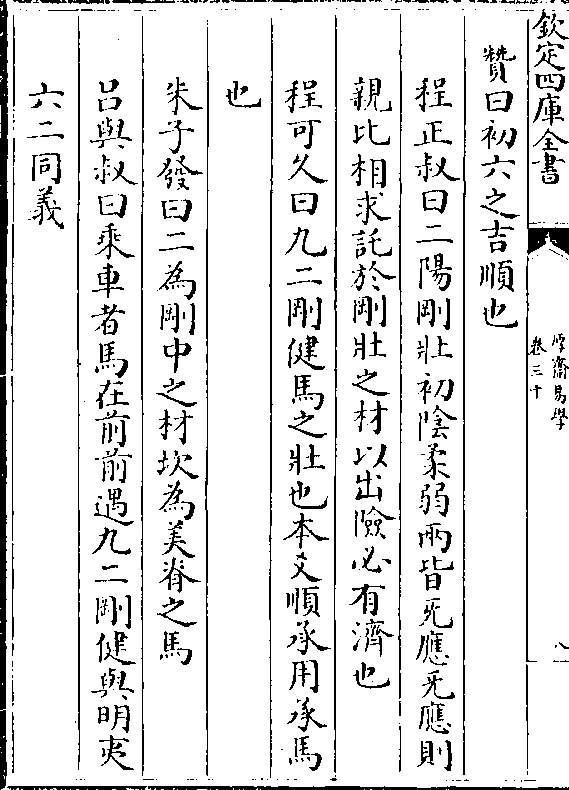 欽定四庫全書
厚齋易學
卷三十
八
贊曰初六之吉順也
程正叔曰二陽剛壯初陰柔弱兩皆旡應旡應則
親比相求託於剛壯之材以出險必有濟也
程可久曰九二剛健馬之壯也本爻順承用承馬
也
朱子發曰二為剛中之材坎為美脊之馬
呂與叔曰乘車者馬在前前遇九二剛健與明夷
六二同義